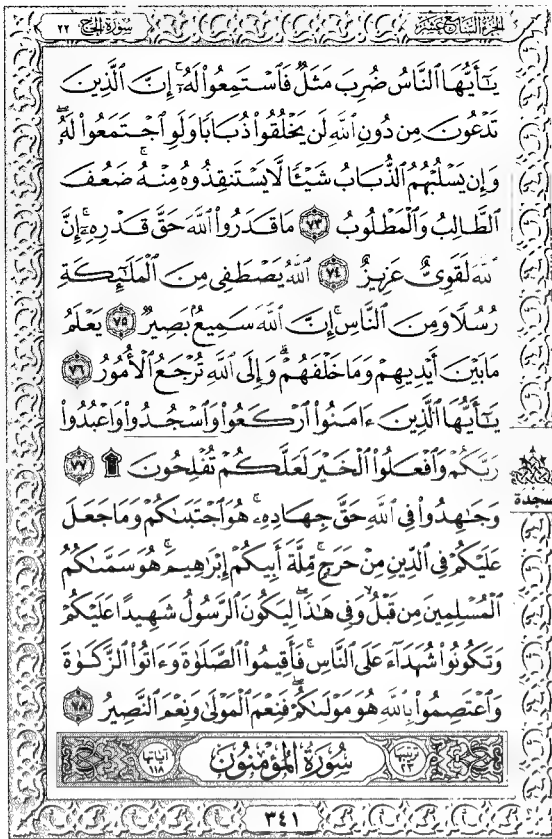 الجزء السابع عشر
سورة الحج ٢٢
يَٰٓأَيُّهَا ٱلنَّاسُ ضُرِبَ مَثَلٌ فَٱسْتَمِعُوا۟ لَهُۥٓ ۚ إِنَّ ٱلَّذِينَ
تَدْعُونَ مِن دُونِ ٱللَّهِ لَن يَخْلُقُوا۟ ذُبَابًا وَلَوِ ٱجْتَمَعُوا۟ لَهُۥ ۖ
وَإِن يَسْلُبْهُمُ ٱلذُّبَابُ شَيْـًٔا لَّا يَسْتَنقِذُوهُ مِنْهُ ۚ ضَعُفَ
ٱلطَّالِبُ وَٱلْمَطْلُوبُ ٧٣ مَا قَدَرُوا۟ ٱللَّهَ حَقَّ قَدْرِهِۦٓ ۗ إِنَّ
ٱللَّهَ لَقَوِىٌّ عَزِيزٌ ٧٤ ٱللَّهُ يَصْطَفِى مِنَ ٱلْمَلَٰٓئِكَةِ
رُسُلًا وَمِنَ ٱلنَّاسِ ۚ إِنَّ ٱللَّهَ سَمِيعٌۢ بَصِيرٌ ٧٥ يَعْلَمُ
مَا بَيْنَ أَيْدِيهِمْ وَمَا خَلْفَهُمْ ۗ وَإِلَى ٱللَّهِ تُرْجَعُ ٱلْأُمُورُ ٧٦
يَٰٓأَيُّهَا ٱلَّذِينَ ءَامَنُوا۟ ٱرْكَعُوا۟ وَٱسْجُدُوا۟ وَٱعْبُدُوا۟
رَبَّكُمْ وَٱفْعَلُوا۟ ٱلْخَيْرَ لَعَلَّكُمْ تُفْلِحُونَ ۩ ٧٧
سجدة
وَجَٰهِدُوا۟ فِى ٱللَّهِ حَقَّ جِهَادِهِۦ ۚ هُوَ ٱجْتَبَىٰكُمْ وَمَا جَعَلَ
عَلَيْكُمْ فِى ٱلدِّينِ مِنْ حَرَجٍ ۚ مِّلَّةَ أَبِيكُمْ إِبْرَٰهِيمَ ۚ هُوَ سَمَّىٰكُمُ
ٱلْمُسْلِمِينَ مِن قَبْلُ وَفِى هَٰذَا لِيَكُونَ ٱلرَّسُولُ شَهِيدًا عَلَيْكُمْ
وَتَكُونُوا۟ شُهَدَآءَ عَلَى ٱلنَّاسِ ۚ فَأَقِيمُوا۟ ٱلصَّلَوٰةَ وَءَاتُوا۟ ٱلزَّكَوٰةَ
وَٱعْتَصِمُوا۟ بِٱللَّهِ هُوَ مَوْلَىٰكُمْ ۖ فَنِعْمَ ٱلْمَوْلَىٰ وَنِعْمَ ٱلنَّصِيرُ ٧٨
ترتيبها ٢٣
سُورَةُ المُؤْمِنُونَ
آياتها ١١٨
٣٤١